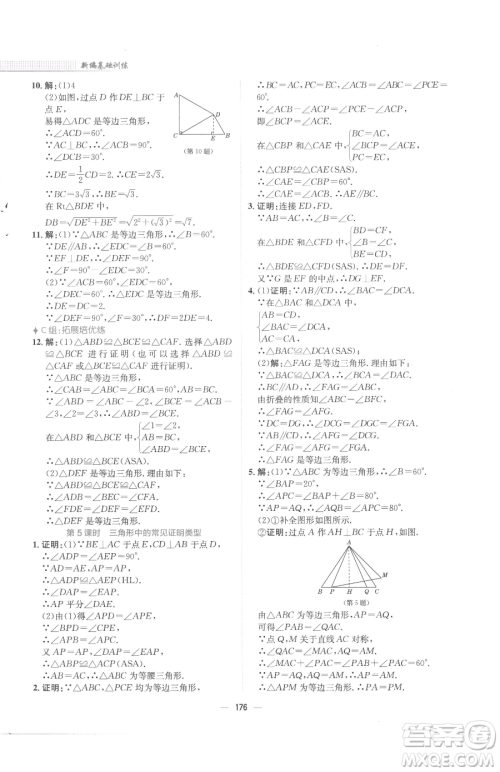 新编基础训练
10. 解：(1)4
(2)如图，过点 D 作 DE⊥BC 于点 E.
易得△ADC 是等边三角形，
∴∠ACD=60°.
∵AC⊥BC，∴∠ACB=90°.
∴∠DCE=30°.
∴DE=1/2 CD=2，CE=2√3.
∵BC=3√3，∴BE=√3.
在 Rt△BDE 中，
DB=√(DE²+BE²)=√(2²+(√3)²)=√7.
A
D
C
E
B
(第10题)
11. 解：∵△ABC 是等边三角形，∴∠B=60°.
∵DE//AB，∴∠EDC=∠B=60°.
∵EF⊥DE，∴∠DEF=90°.
∴∠F=90°-∠EDC=30°.
C 组:拓展培优练
12. 解：(1)△ABD≌△BCE≌△CAF. 选择△ABD
≌△BCE 进行证明(也可以选择△ABD≌△
CAF 或△BCE≌△CAF 进行证明).
∵△ABC 是等边三角形，
∴∠CAB=∠ABC=∠BCA=60°，AB=BC.
∵∠ABD=∠ABC-∠2，∠BCE=∠ACB
-∠3，∠2=∠3，
∴∠ABD=∠BCE.
在△ABD 和△BCE 中，
∠1=∠2，
AB=BC，
∠ABD=∠BCE，
∴△ABD≌△BCE(ASA).
(2)△DEF 是等边三角形. 理由如下:
∵△ABD≌△BCE≌△CAF，
∴∠ADB=∠BEC=∠CFA.
∴∠FDE=∠DEF=∠EFD.
∴△DEF 是等边三角形.
第 5 课时 三角形中的常见证明类型
1. 证明：(1)∵AE⊥BE 于点 E，AD⊥DC 于点 D，
∴∠ADP=∠AEP=90°.
∴△ADP≌△AEP(HL).
∴AP 平分∠BAC.
(2)由(1)可得∠APD=∠APE.
又∵∠DPB=∠EPC，
∴∠APB=∠APC.
又∵AP=AP，∠PAB=∠PAC，
∴△APB≌△APC(ASA).
∴AB=AC.
∴△ABC 是等腰三角形.
2. 证明：∵△ABC，△PCE 均为等边三角形，
∴BC=AC，PC=CE，∠ACB=∠PCE=
60°.
∴∠ACB-∠ACP=∠PCE-∠ACP，
即∠BCP=∠ACE.
在△CBP 和△CAE 中，
BC=AC，
∠BCP=∠ACE，
PC=EC，
∴△CBP≌△CAE(SAS).
∴∠CAE=∠B=60°.
∴∠CAE=∠ACB. ∴AE//BC.
3. 证明：连接 ED，FD.
在△BDE 和△CFD 中，
BD=CF，
∠B=∠C，
BE=CD，
∴△BDE≌△CFD(SAS). ∴DE=DF.
又∵G 是 EF 的中点，∴DG⊥EF.
4. (1)证明：∵AB=AC，∴∠B=∠C.
在△ABD 和△ACE 中，
AB=AC，
∠B=∠C，
BD=CE，
∴△ABD≌△ACE(SAS). ∴AD=AE.
(2)解：△FAG 是等腰三角形. 理由如下:
∵△ABD≌△ACE，
∴∠BAD=∠CAE.
由折叠的性质可知，∠CAE=∠FAG，
∴∠FAG=∠BAD.
∵CF//AB，∴∠BAD=∠AGF.
∴∠FAG=∠AGF. ∴AF=FG.
∴△FAG 是等腰三角形.
5. 解：(1)∵△ABC 为等边三角形，∴∠B=60°.
∵∠BAP=20°，
∴∠APC=∠BAP+∠B=80°.
∵AP=AQ，∴∠AQB=∠APC=80°.
(2)①补全图形如图所示.
②证明：过点 A 作 AH⊥BC 于点 H，如图.
A
M
B
P
H
Q
C
(第5题)
由△ABC 为等边三角形，AP=AQ，
可得∠PAB=∠QAC.
∵点 Q，M 关于直线 AC 对称，
∴∠QAC=∠MAC，AQ=AM=AP.
∴∠MAC+∠PAC=∠PAB+∠PAC=60°.
∴△APM 为等边三角形. ∴PA=PM.
176
答案圈
MXQE.COM